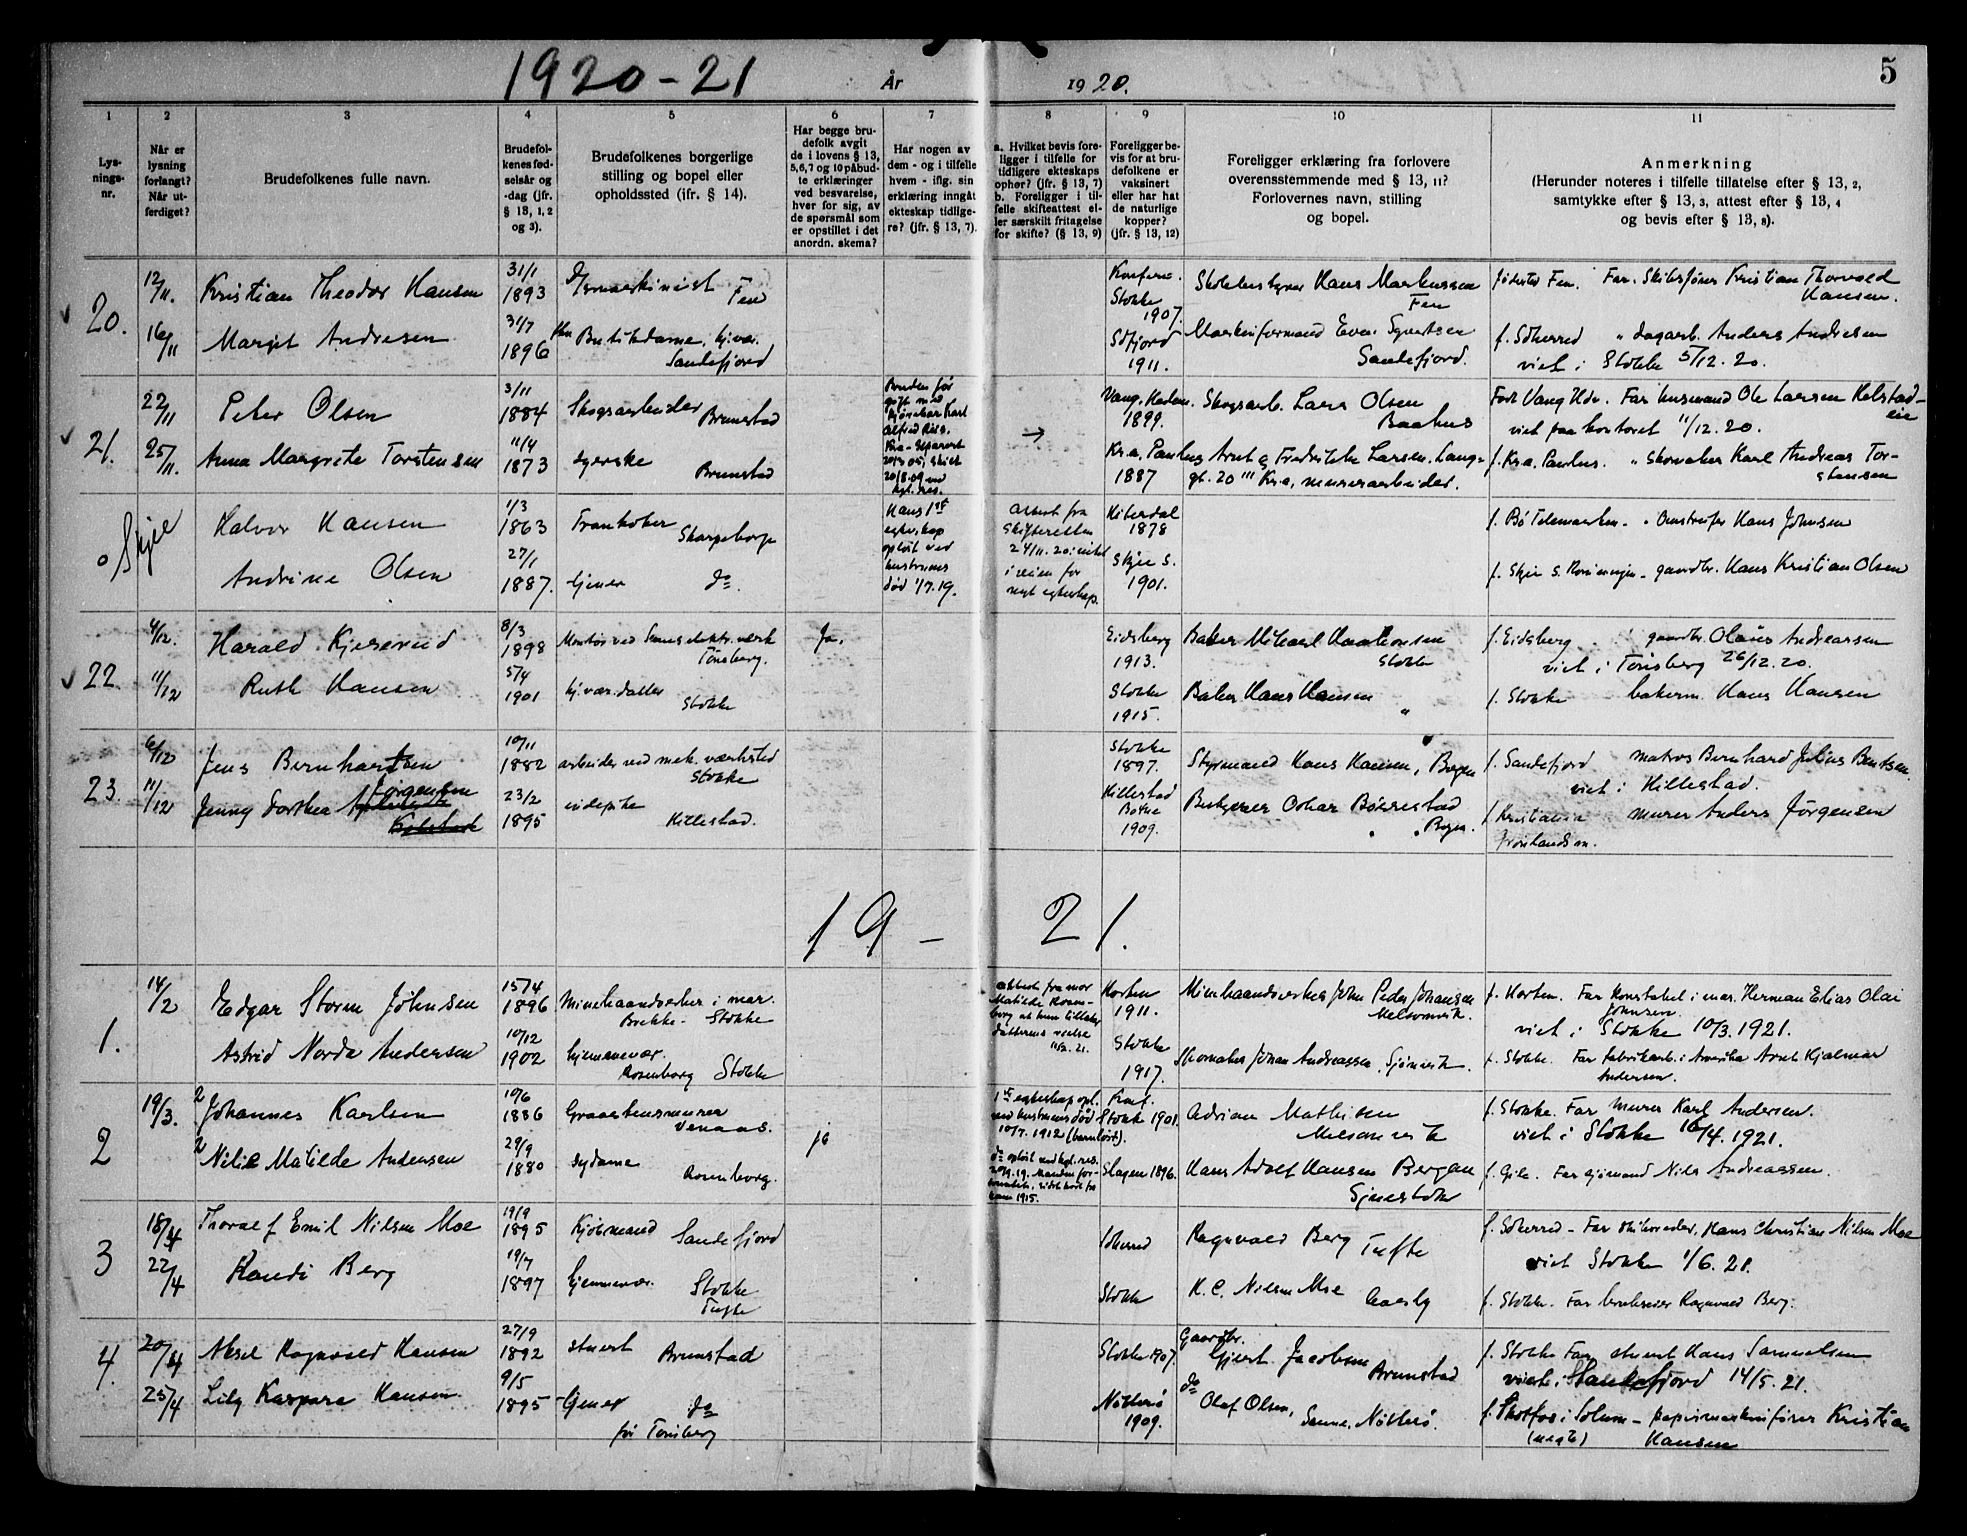 1920-21
År
1920.
5
1
2
3
4
5
6
7
8
9
10
11
Lys-
nings-
nr.
Når er
lysning
forlangt?
Når ut-
ferdiget?
Brudefolkenes fulle navn.
Brudefol-
kenes fød-
selsår og
-dag (jfr.
§ 13, 1, 2
og 3).
Brudefolkenes borgerlige
stilling og bopel eller
opholdssted (jfr. § 14).
Har begge bru-
defolk avgit
de i lovens § 13,
5, 6, 7 og 10 påbud-
te erklæringer
ved besvarelse,
hver for sig, av
de spørsmål som
er opstillet i det
anordn. skema?
Har nogen av
dem - og i tilfelle
hvem - iflg. sin
erklæring inngåt
ekteskap tidlige-
re? (jfr. § 13, 7).
a. Hvilket bevis fore-
ligger i tilfelle for
tidligere ekteskaps
ophør? (jfr. § 13, 7)
b. Foreligger i til-
felle skifteattest el-
ler særskilt fritagelse
for skifte? (§ 13, 9)
Foreligger be-
vis for at bru-
defolkene er
vaksinert
eller har hat
de naturlige
kopper?
(jfr. § 13, 12)
Foreligger erklæring fra forlovere
overensstemmende med § 13, 11?
Forlovernes navn, stilling
og bopel.
Anmerkning
(Herunder noteres i tilfelle tillatelse efter § 13, 2,
samtykke efter § 13, 3, attest efter § 13, 4
og bevis efter § 13, 8).
20.
12/11.
Kristian Theodor Hansen
31/1
1893
Fen
Stokke
1907.
Hans Markussen
Fen
Fen. Far. Kristian Thorvald
Hansen.
16/11
Margit Andresen
31/7
1896
Butikdame, hjvær.
Sandefjord
Sdfjord
1911.
Maskinformand Even Syvertsen
Sandefjord.
f. Sdherred " dagarb. Anders Andresen
viet i Stokke 5/12. 20.
21.
22/11
Peter Olsen
3/11
1884
Skogsarbeider Brunstad
Bruden før
gift med
Vang, Hedem.
1899.
Skogsarb. Lars Olsen
Født Vang Hdm. Far husmand Ole Larsen
viet paa kontoret 11/12. 20.
25/11.
Anna Margrete Torstensen
11/4
1873
syerske Brunstad
Kr.a. Paulus
1887
Arnt & Fredrikke Larsen, Lang-
gt. 20 III Kr.a, murerarbeider.
f. Kr.a. Paulus. " Skomaker Karl Andreas Tor-
stensen
Skjee
Halvor Hansen
1/3
1863
Hans 1ste
egteskap
opløst ved
hustruens
død 1/7.19.
attest fra
skifteretten
24/11. 20:
i veien for
nyt egteskap.
Hiterdal
1878
f. Bø Telemarken Hans Johnsen
Andrine Olsen
27/1
1887.
tjener do.
Skjee s.
1901.
f. Skjee s. gaardbr. Hans Kristian Olsen
22
4/12.
Harald Kjeserud
8/3
1898
Montør ved
Tønsberg.
Ja.
Eidsberg
1913.
Baker Mikael Haakonsen
Stokke
f. Eidsberg gaardbr. Olaus Andreassen
viet i Tønsberg 26/12. 20.
11/12
Ruth Hansen
5/4
1901
hj.vær. datter
Stokke
Stokke
1915.
Baker Hans Hansen "
f. Stokke bakerm. Hans Hansen
23.
6/12
Jens Bernhardtsen
10/11
1882
arbeider ved mek. værksted
Stokke
Stokke
1897.
Styrmand Hans Hansen, Bogen
f. Sandefjord matros Bernhard Julius Bentsen.
viet i Hillestad.
11/12
Jenny Dorthea Jørgensen
23/2
1895
Hillestad.
Hillestad
Botne
1909.
Oskar Børrestad
" Bogen.
f. Kristiania murer Anders Jørgensen
Grønlands m.
19 - 21.
1.
14/2
Edgar Storm Johnsen
15/4
1896
Minehaandverker i mar.
Brekke - Stokke
attest fra mor
Matilde Rosen-
borg at hun tillater
datterens vielse
Horten
1911.
Minehaandverker John Peder Johansen
Melsomvik.
f. Horten. Far konstabel i mar. Herman Elias Olai
Johnsen.
viet i Stokke 10/3. 1921.
Astrid Norda Andersen
10/12
1902
hjemmevær.
Rosenborg Stokke
Stokke
1917.
Skomaker Johan Andreassen, Sjømvik.
f. Stokke. Far fabrikarb. i Amerika Arnt Hjalmar
Andersen.
2
19/3.
2 Johannes Karlsen
10/6
1886
Graastensmurer
Venaas.
ja
1ste egteskap opl.
ved hustruens død
10/7. 1912 (barnløst).
Stokke 1901.
Adrian Mathisen
Melsomvik
f. Stokke. Far murer Karl Andersen.
viet i Stokke 16/4. 1921.
2 Nilie Matilde Andersen
29/9
1880
sydame
Rosenborg.
do opløst ved kgl. res.
Slagen 1896.
Hans Adolf Hansen Bergan
f. Far sjømand Nils Andreassen.
3
18/4
Thoralf Emil Nilsen Moe
19/9
1895
Kjøbmand Sandefjord
Sdherred
Ragnvald Berg Tufte
f. Sdherred - Far skibsreder, Hans Christian Nilsen Moe
viet Stokke 1/6. 21.
22/4
Randi Berg
19/7
1897
hjemmevær. Stokke
Tufte
Stokke
H. C. Nilsen Moe
f. Stokke. Far brukseier Ragnvald Berg.
4.
20/4
Aksel Ragnvald Hansen
27/9
1892
stuert Brunstad
Stokke 1907.
Gaardbr.
Gjert Jacobsen Brunstad
f. Stokke Far stuert Hans Samuelsen
viet i Sandefjord 14/5. 21.
25/4
Lily Kaspara Hansen
9/5
1895
Tjener do
før Tønsberg
Nøtterø
1909.
do Olaf Olsen, Sanne, Nøtterø.
f. Skotfos i Solum - papirmaskinfører Kristian
Hansen